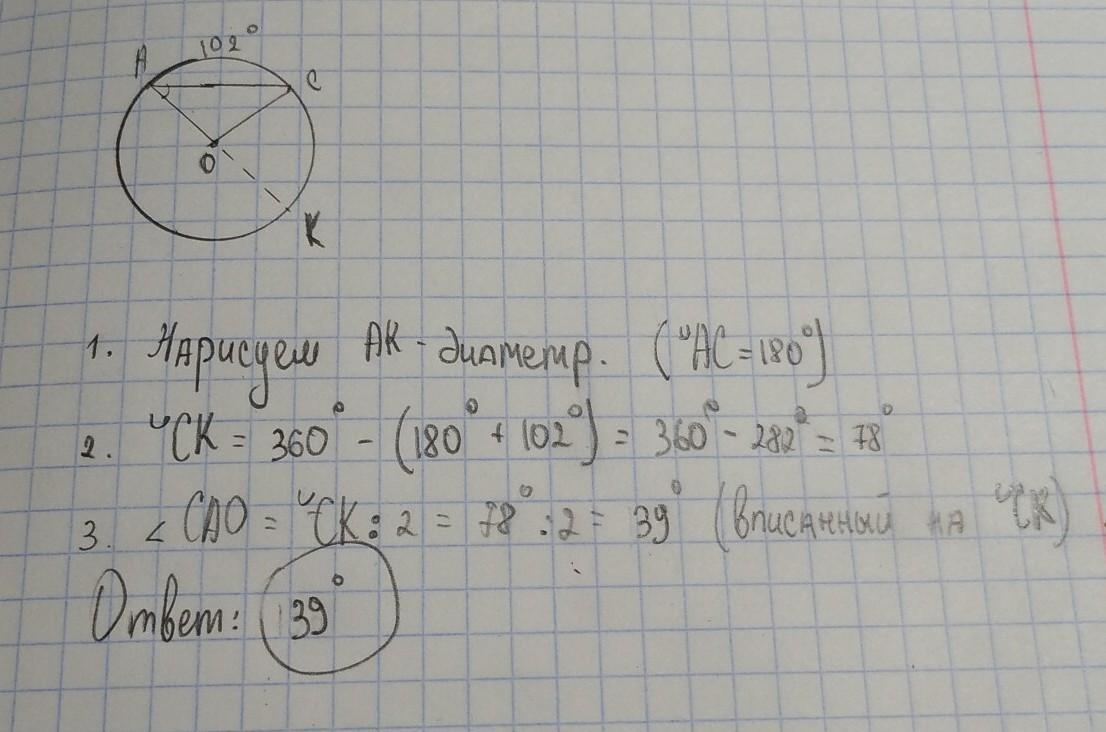 102°
A
C
O
K
1. Нарисуем АК - диаметр. (◡AC = 180°)
2. ◡CK = 360° - (180° + 102°) = 360° - 282° = 78°
3. ∠CAO = ◡CK : 2 = 78° : 2 = 39° (вписанный на ◡CK)
Ответ: 39°